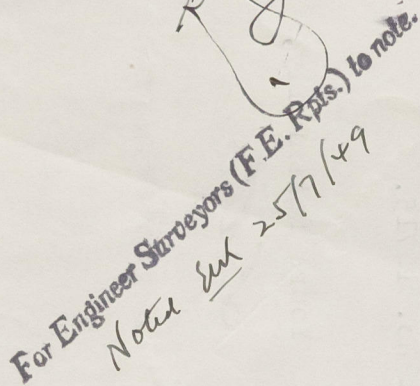 For Engineer Surveyors (F.E. Rpts.) to note.
Noted 25/7/49